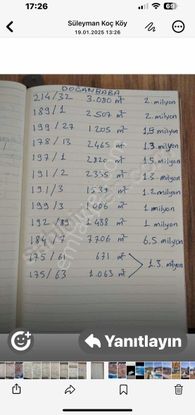 17:26
69
Süleyman Koç Köy
19.01.2025 13:26
DOĞANBABA
214/32 3.080 m² 2. milyon
189/1 2.507 m² 2. milyon
199/27 1205 m² 1,9 milyon
178/13 2.465 m² 1.3 milyon
197/1 m² 1.5 milyon
191/2 2.335 m² 1.3 milyon
191/3 1539 m² 1.2 milyon
199/3 m² 1 milyon
192 / 1 438 m² 1 milyon
184/ 7706 m² 6.5 milyon
175/ 671 m²
175/63 1.063 m² 1.3. milyon
Yanıtlayın